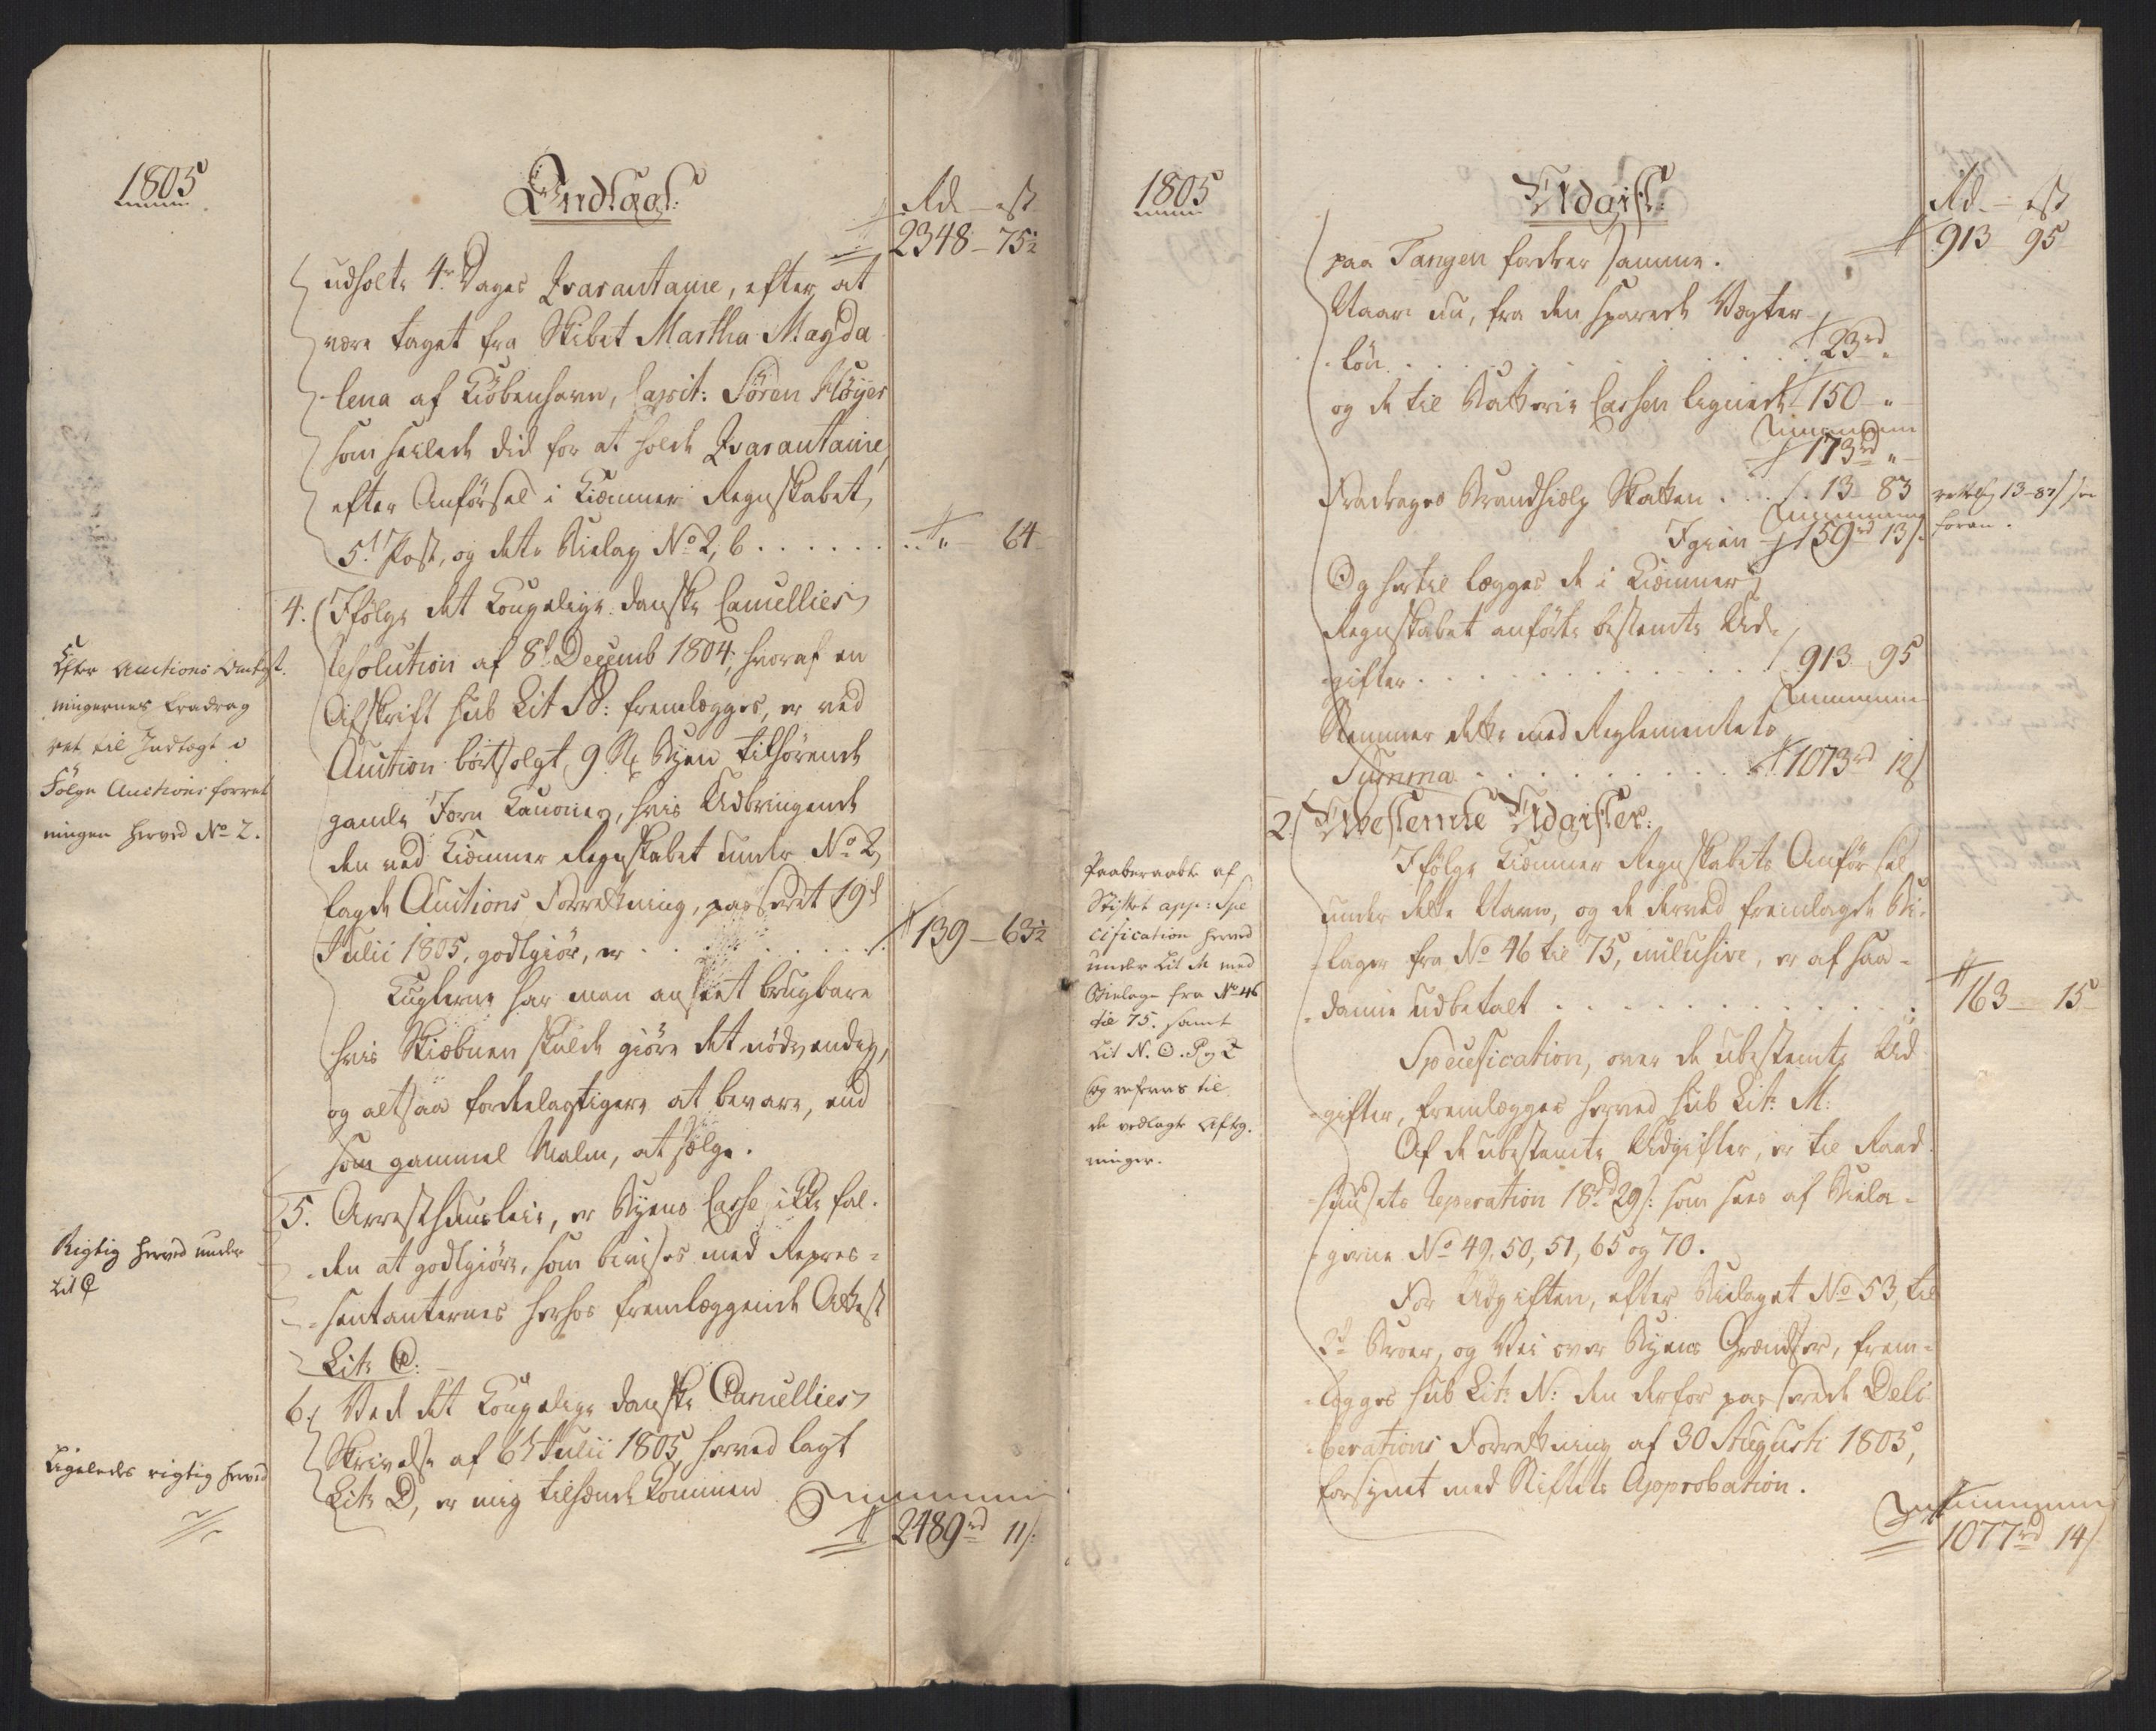 1805
Indtægt:
Rd – ß
2348 – 75½
udholte 4re Dages Qvarantaine, efter at
være taget fra Skibet Martha Magda
lena af Kiöbenhavn, Capit: Sören Höyer
som seilede did for at holde Qvarantaine,
efter Anförsel i Kiæmner Regnskabet,
5te Post, og dets Bielag No 2, b . . . . . . . . " – 64
4. Ifölge det Kongelige danske Cancellies
Resolution af 8de Decemb 1804, hvoraf en
Afskrift sub Lit B: fremlægges, er ved
Auction bortsolgt, 9 St Byen tilhörende
gamle Jern Kanoner, hvis Udbringende
den ved Kiæmner Regnskabet under No 2,
lagde Auctions Forretning, passeret 19de
Julii 1805, godtgiör, er . . . . . . . . 139 – 63½
Kuglerne har man anseet brugbare
hvis Skiæbnen skulde giöre det nödvendig,
og altsaa fordelagtigere at bevare, end
som gammel Malm, at sælge.
5. Arresthuusleie, er Byens Casse ikke fal-
den at godtgiöre, som bevises med Repræs-
sentanternes herhos fremlæggende Attest
Litr C:
6. Ved det Kongelige danske Cancellies
Skrivelse af 6te Julii 1805, herved lagt
Litr D, er mig tilhændekommen
2489rd 11ß
Efter Auctions Omkost-
ningernes Fradrag
ret til Indtægt i
Fölge Auctions forret
ningen herved No 2.
Rigtig herved under
Lit C
Ligeledes rigtig herved
1805
Udgift:
Rd – ß
913 95
paa Tangen fordrer samme.
Naar nu, fra den sparede Vægter-
lön . . . . . . . . 23rd "
og de til Batterie Cassen lignede 150 – "
173rd "
Fradrages Brandhielp Skatten . . . . 13 – 83
rettelig 13–87ß see
foran.
Igien 159rd 13ß
Og hertil lægges de i Kiæmner
Regnskabet anförte bestemte Ud-
gifter . . . . . . . . 913 95
Stemmer dette med Reglementets
Summa . . . . . . . . 1073rd 12ß
2. Ubestemte Udgifter:
Ifölge Kiæmner Regnskabets Anförsel
under dette Navn, og de derved fremlagde Bi-
lager fra No 46 til 75, inclusive, er af saa-
danne udbetalt . . . . . . . . 163 – 15
Specification, over de ubestemte Ud
gifter, fremlægges herved sub Litr M:
Af de ubestemte Udgifter, er til Raad
huusets Reperation 18rd 29ß: som sees af Biela-
gerne No 49, 50, 51, 65 og 70.
For Udgiften, efter Bielaget No 53, til
2de Broer, og Vei over Byens Grændser, frem-
lægges sub Litr N: den derfor passerede Deli
berations Forretning af 30 Augusti 1805,
forsynet med Stiftets Approbation.
1077rd 14ß
Paaberaabte af
Stiftet app: Spe
cification herved
under Lit M med
Bielage fra No 46
til 75. samt
Lit N. O. P og Q
og referes til
de vedlagte Afteg-
ninger.